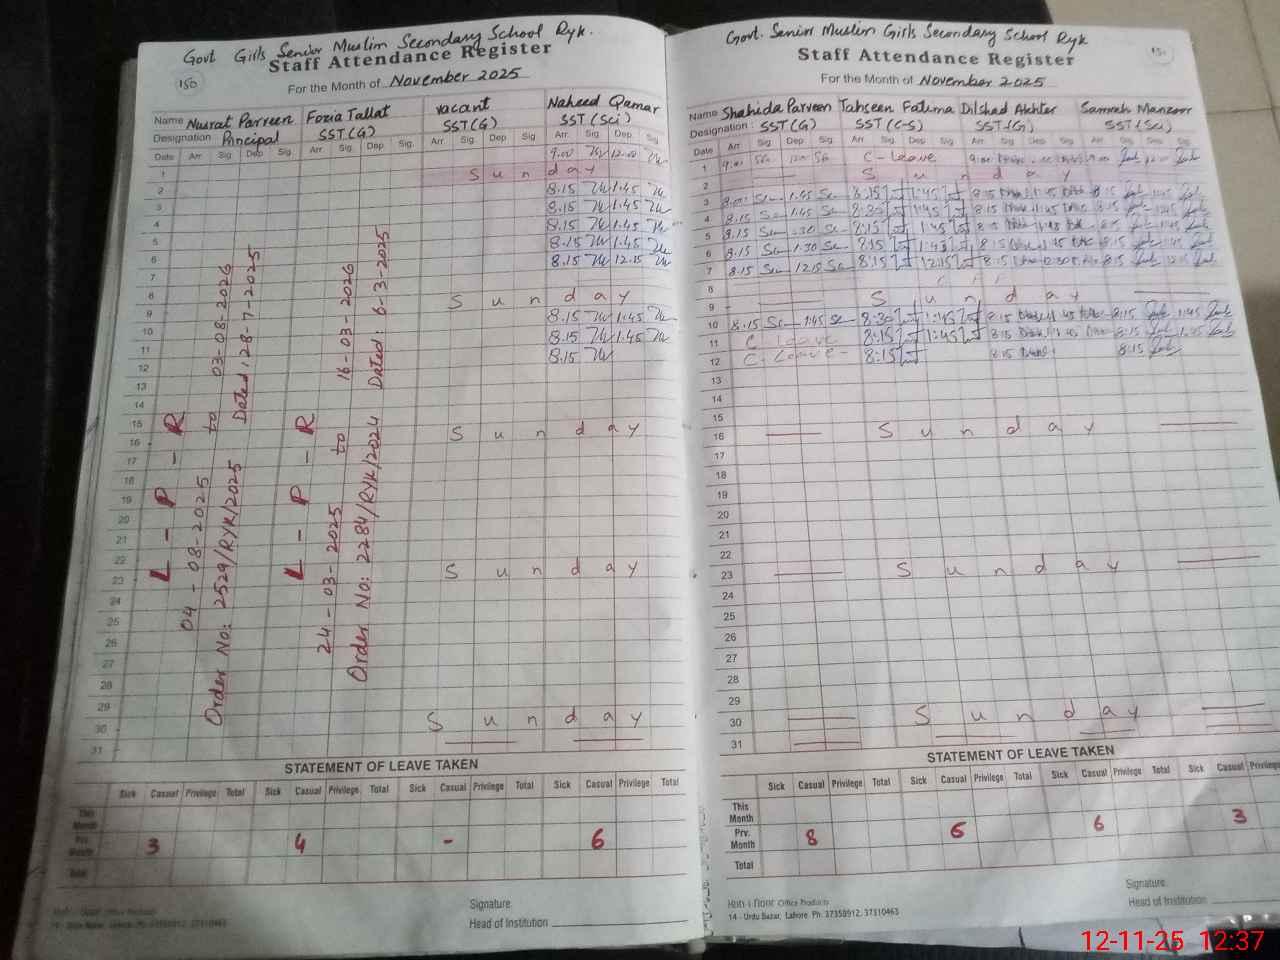 Govt Girls Senior Muslim Secondary School Ryk.
Staff Attendance Register
150
For the Month of November 2025
Name Nusrat Parveen Fozia Tallat vacant Naheed Qamar
Designation Principal SST(G) SST(G) SST(Sci)
Date Arr Sig Dep Sig Arr. Sig. Dep Sig. Arr Sig Dep Sig Arr. Sig. Dep. Sig.
1 9.00 12.00
2 Sunday
3 8.15 1.45
4 8.15 1.45
5 8.15 1.45
6 8.15 1.45
7 8.15 12.15
8
9 Sunday
10 8.15 1.45
11 8.15 1.45
12 8.15
13
14
15
16 Sunday
17
18
19
20
21
22
23 Sunday
24
25
26
27
28
29
30 Sunday
31
L-P-R
04-08-2025 to 03-08-2026
Order No: 2529/RYK/2025 Dated: 28-7-2025
L-P-R
24-03-2025 to 16-03-2026
Order No: 2284/RYK/2024 Dated: 6-3-2025
STATEMENT OF LEAVE TAKEN
Sick Casual Privilege Total Sick Casual Privilege Total Sick Casual Privilege Total Sick Casual Privilege Total
This Month
Prv. Month 3 4 - 6
Total
Signature.
Head of Institution
Office Products
Urdu Bazar, Lahore. Ph: 37358912, 37310463
Govt. Senior Muslim Girls Secondary School Ryk
Staff Attendance Register
For the Month of November 2025
Name Shahida Parveen Tahseen Fatima Dilshad Akhter Samrah Manzoor
Designation: SST(G) SST(C-S) SST(G) SST(Sci)
Date Arr Sig Dep Sig Arr Sig Dep Sig Arr Sig Dep Sig Arr Sig Dep Sig
1 9.00 C-Leave 9.00 9.00
2 Sunday
3 8.15 1:45 8.15 1.45 8.15 1.45
4 8.15 1.45 8:30 1:45 8.15 1.45 8.15 1.45
5 8.15 8:15 1:45 8.15 8.15
6 8.15 1.30 8:15 1:45 8.15 8.15 1.45
7 8.15 12.15 8:15 12:15 8.15 12.30 8.15
8
9 Sunday
10 8.15 1.45 8:30 1:45 8.15 8.15 1.45
11 C-Leave 8:15 1:45 8.15 8.15 1.45
12 C-Leave 8:15 8.15 8.15
13
14
15
16 Sunday
17
18
19
20
21
22
23 Sunday
24
25
26
27
28
29
30 Sunday
31
STATEMENT OF LEAVE TAKEN
Sick Casual Privilege Total Sick Casual Privilege Total Sick Casual Privilege Total Sick Casual Privilege
This Month
Prv. Month 8 6 6 3
Total
Signature.
Head of Institution
Office Products
14 - Urdu Bazar, Lahore. Ph: 37358912, 37310463
12-11-25 12:37